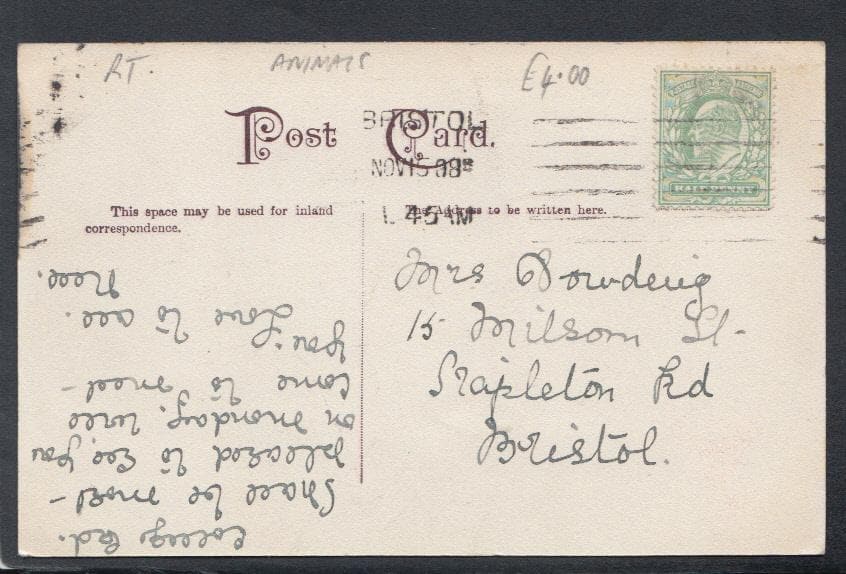 RT.
ANIMALS
£4.00
Post Card.
BRISTOL
NOV 15 08
1.45AM
HALFPENNY
This space may be used for inland
correspondence.
The Address to be written here.
Mrs Dowding
15 Milsom St-
Stapleton Rd
Bristol.
College Rd.
Shall be most
pleased to see you
on Monday, will
come to meet
you.
Love to all.
Nell.